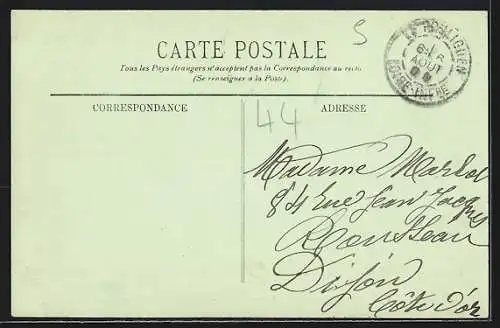 5
CARTE POSTALE
Tous les Pays étrangers n'acceptent pas la Correspondance au recto
(Se renseigner à la Poste).
CORRESPONDANCE
ADRESSE
44
LE POULIGUEN
AOUT
LOIRE-INFRE
Madame
84 Rue Jean Jacques
Rousseau
Dijon
Côte d'or